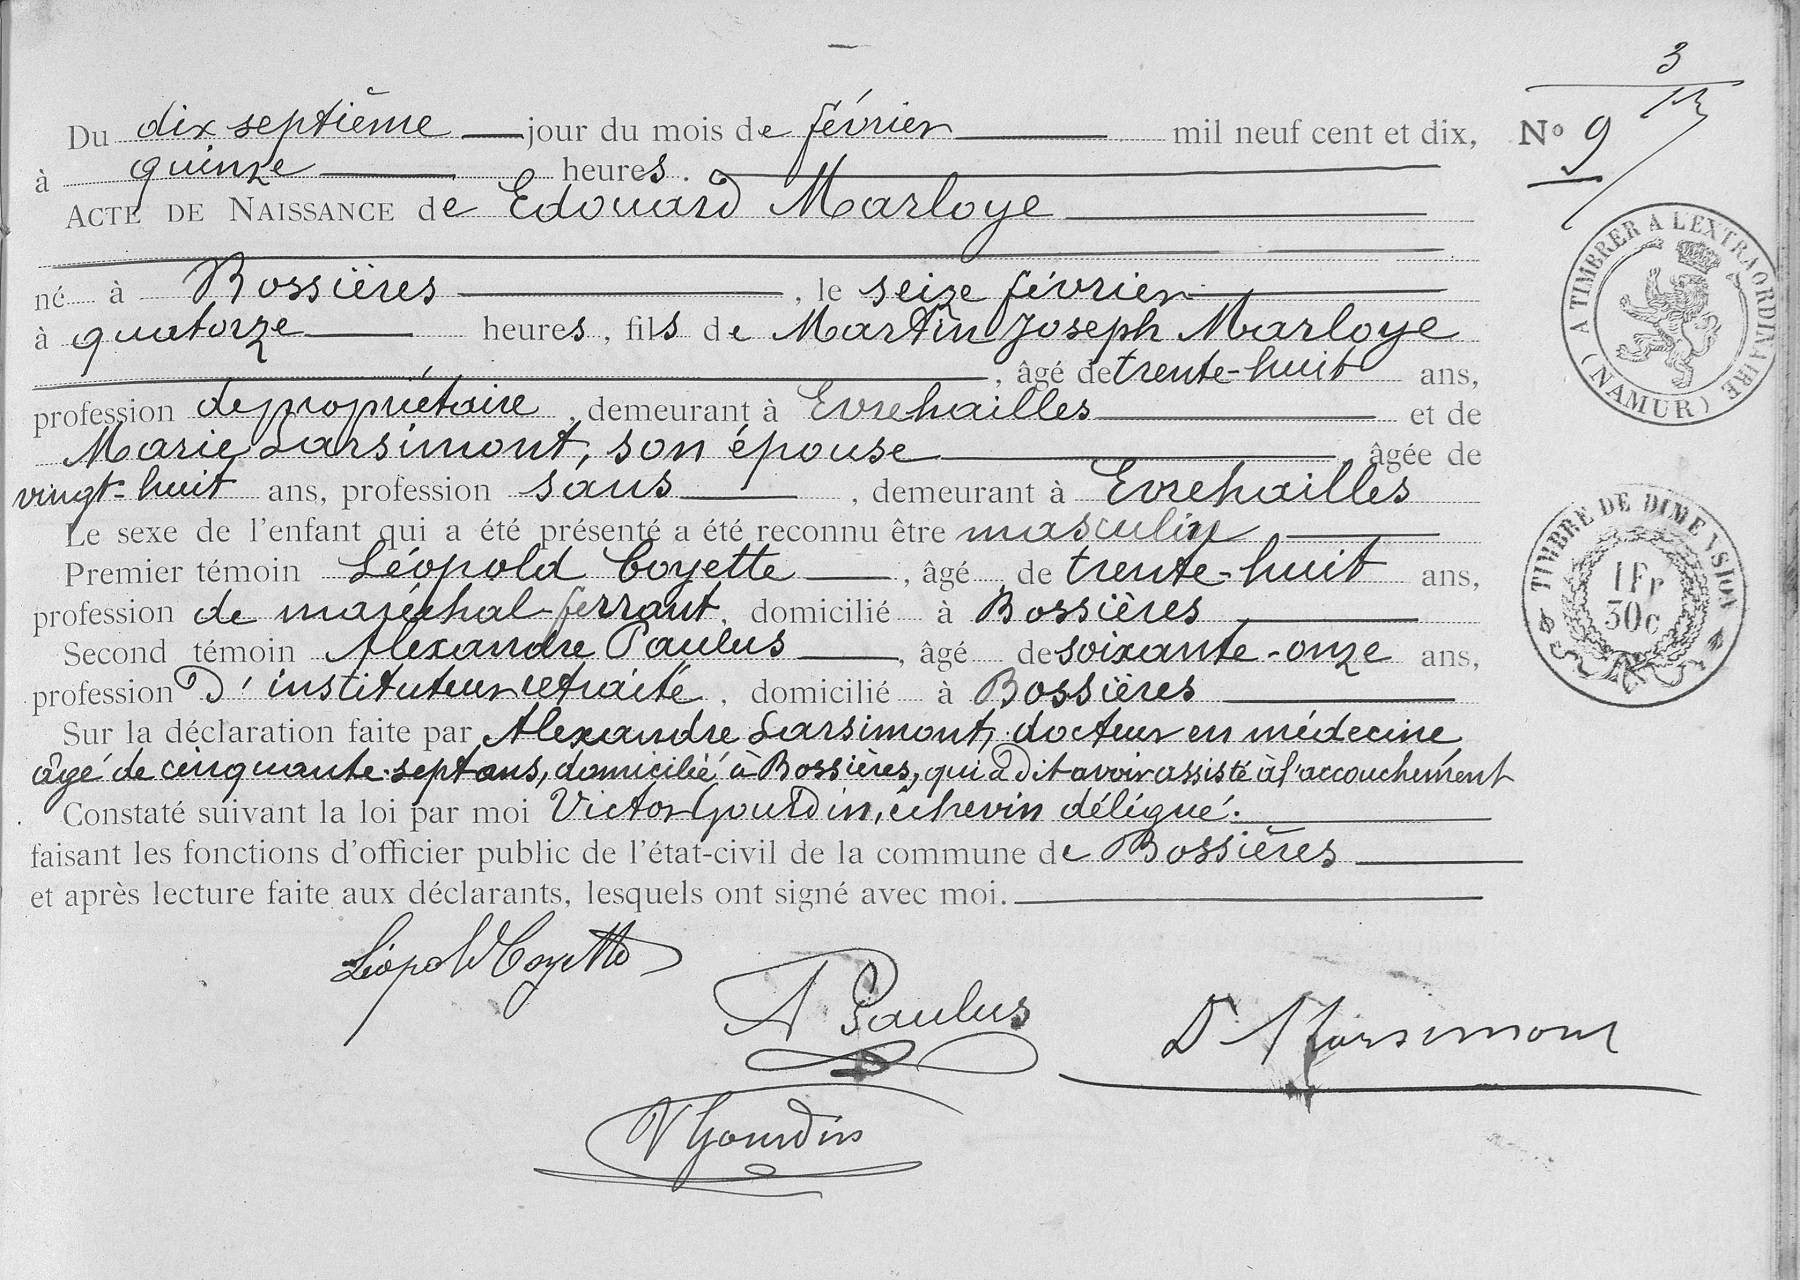 3
13
Du dix septième jour du mois de février mil neuf cent et dix, No 9
à quinze heures.
ACTE DE NAISSANCE de Edouard Marloye
né à Bossières, le seize février
à quatorze heures, fils de Martin Joseph Marloye
, âgé de trente-huit ans,
profession de propriétaire, demeurant à Evrehailles et de
Marie Larsimont, son épouse âgée de
vingt-huit ans, profession sans, demeurant à Evrehailles
Le sexe de l'enfant qui a été présenté a été reconnu être masculin
Premier témoin Léopold Coyette, âgé de trente-huit ans,
profession de maréchal-ferrant, domicilié à Bossières
Second témoin Alexandre Paulus, âgé de soixante-onze ans,
profession D'instituteur retraité, domicilié à Bossières
Sur la déclaration faite par Alexandre Larsimont, docteur en médecine,
âgé de cinquante-sept ans, domicilié à Bossières, qui a dit avoir assisté à l'accouchement
Constaté suivant la loi par moi Victor Gourdin, échevin délégué.
faisant les fonctions d'officier public de l'état-civil de la commune de Bossières
et après lecture faite aux déclarants, lesquels ont signé avec moi.
Léopold Coyette
A Paulus
Dr A Larsimont
V Gourdin
A TIMBRER A L'EXTRAORDINAIRE
(NAMUR)
TIMBRE DE DIMENSION
1 Fr
30 c